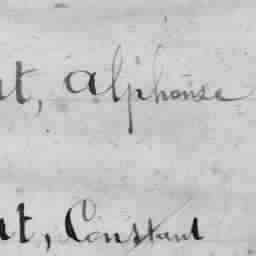 t, Alphonse
t, Constant